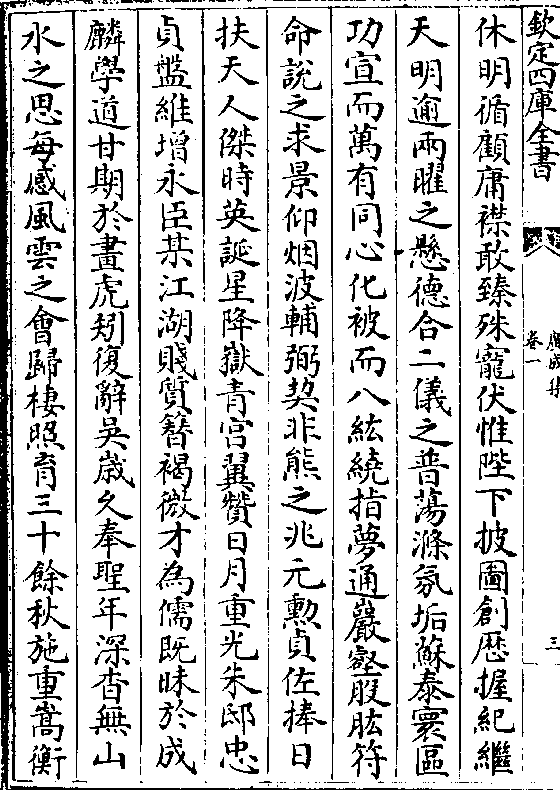 欽定四庫全書
廣成集
卷一
三
休明循顧庸襟敢臻殊寵伏惟陛下披圖創歴握紀繼
天明逾兩曜之懸德合二儀之普蕩滌氛垢蘇泰寰區
功宣而萬有同心化被而八紘繞指夢通巖壑股肱符
命說之求景仰烟波輔弼契非熊之兆元勲貞佐捧日
扶天人傑時英誕星降嶽青宮翼贊日月重光朱邸忠
貞盤維增永臣某江湖賤質簪褐微才為儒既昧於成
麟學道甘期於畫虎矧復辭吳歲久奉聖年深杳無山
水之思每感風雲之會歸棲照育三十餘秋施重嵩衡